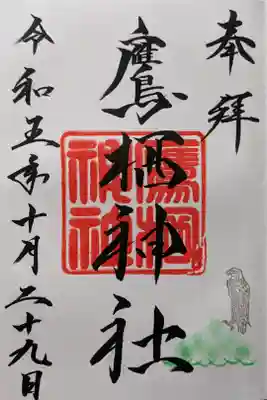 奉拜
鷹栖神社
鷹栖神社
令和五年十月二十九日